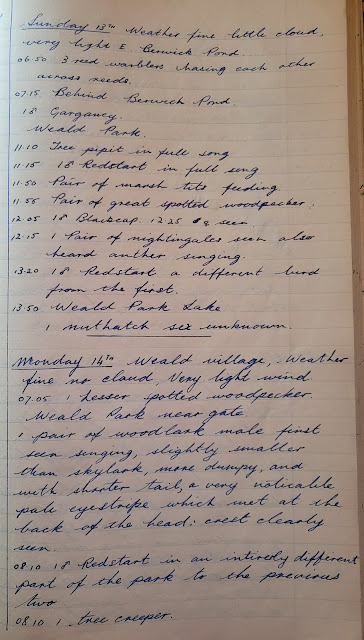 Sunday 13th Weather fine little cloud,
very light E Berwick Pond.
06.50 3 reed warblers chasing each other
across reeds.
07.15 Behind Berwick Pond.
1♂ Gargancy.
Weald Park.
11.10 Tree pipit in full song
11.15 1♂ Redstart in full song
11.50 Pair of marsh tits feeding
11.55 Pair of great spotted woodpecker.
12.05 1♂ Blackcap. 12.25 ♀ seen
12.15 1 Pair of nightingales seen also
heard anther singing.
13.20 1♂ Redstart a different bird
from the first.
13.50 Weald Park Lake
1 nuthatch sex unknown.
Monday 14th Weald village, Weather
fine no cloud, Very light wind.
07.05 1 Lesser spotted woodpecker.
Weald Park near gate
1 pair of woodlark male first
seen singing, slightly smaller
than skylark, more dumpy, and
with shorter tail, a very noticable
pale eyestripe which met at the
back of the head: crest clearly
seen.
08.10 1♂ Redstart in an intirely different
part of the park to the previous
two
08.10 1 tree creeper.